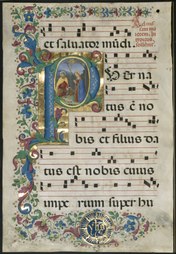 et saluator mūdi.
P
uer na
tus ē no
bis et filius da
tus est nobis cuius
impe rium super hu